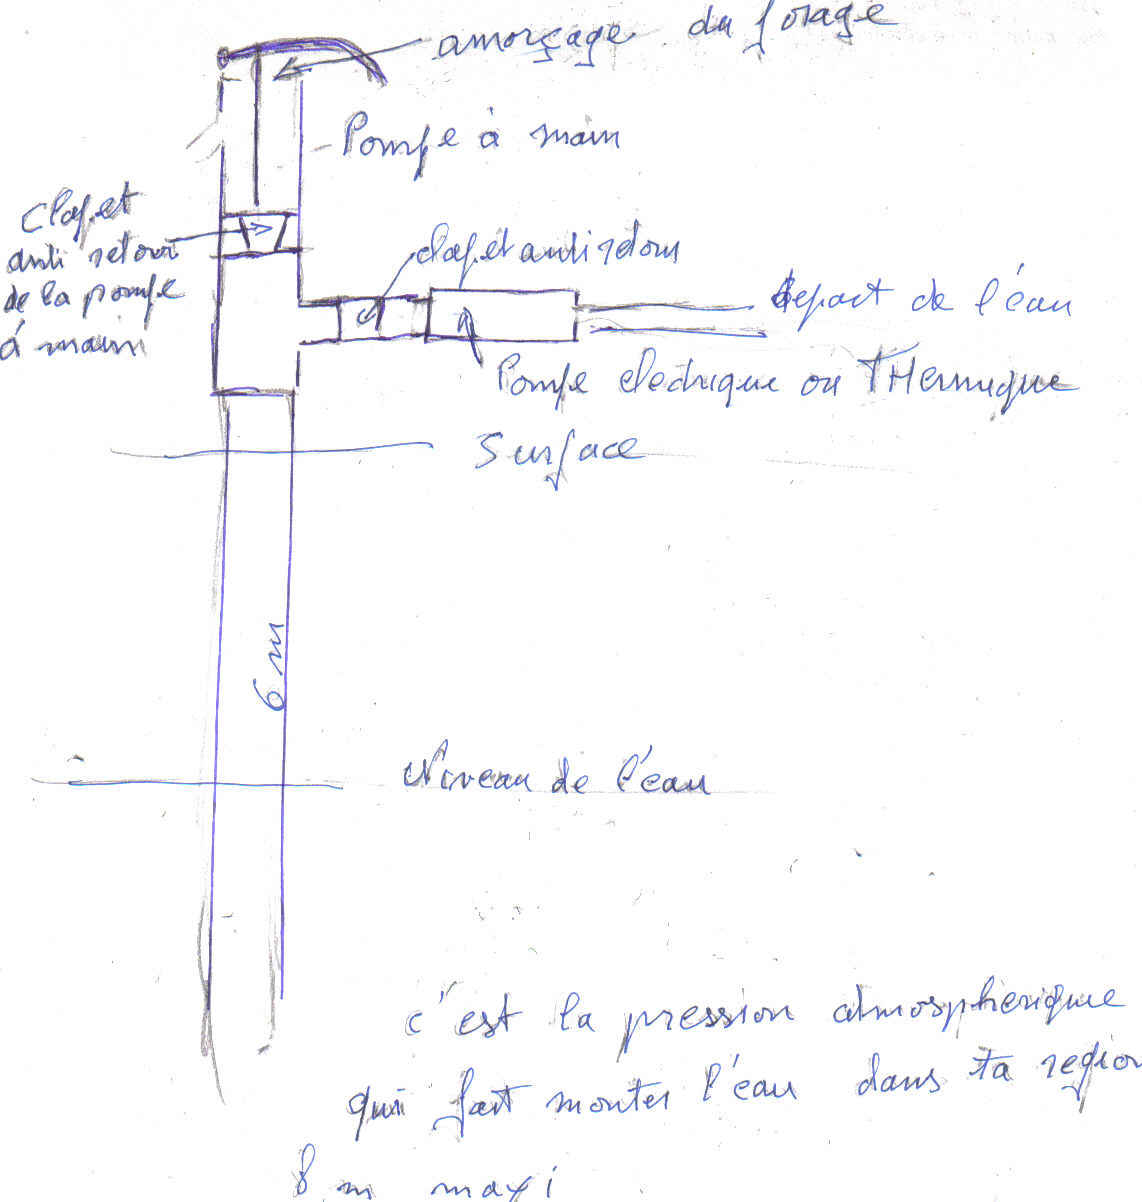 amorçage du forage
Pompe à main
Clapet
anti retour
de la pompe
à main
clapet anti retour
depart de l'éau
Pompe electrique ou THermique
Surface
6 m
Niveau de l'éau
c'est la pression atmospherique
qui fait monter l'éau dans ta region
8 m maxi